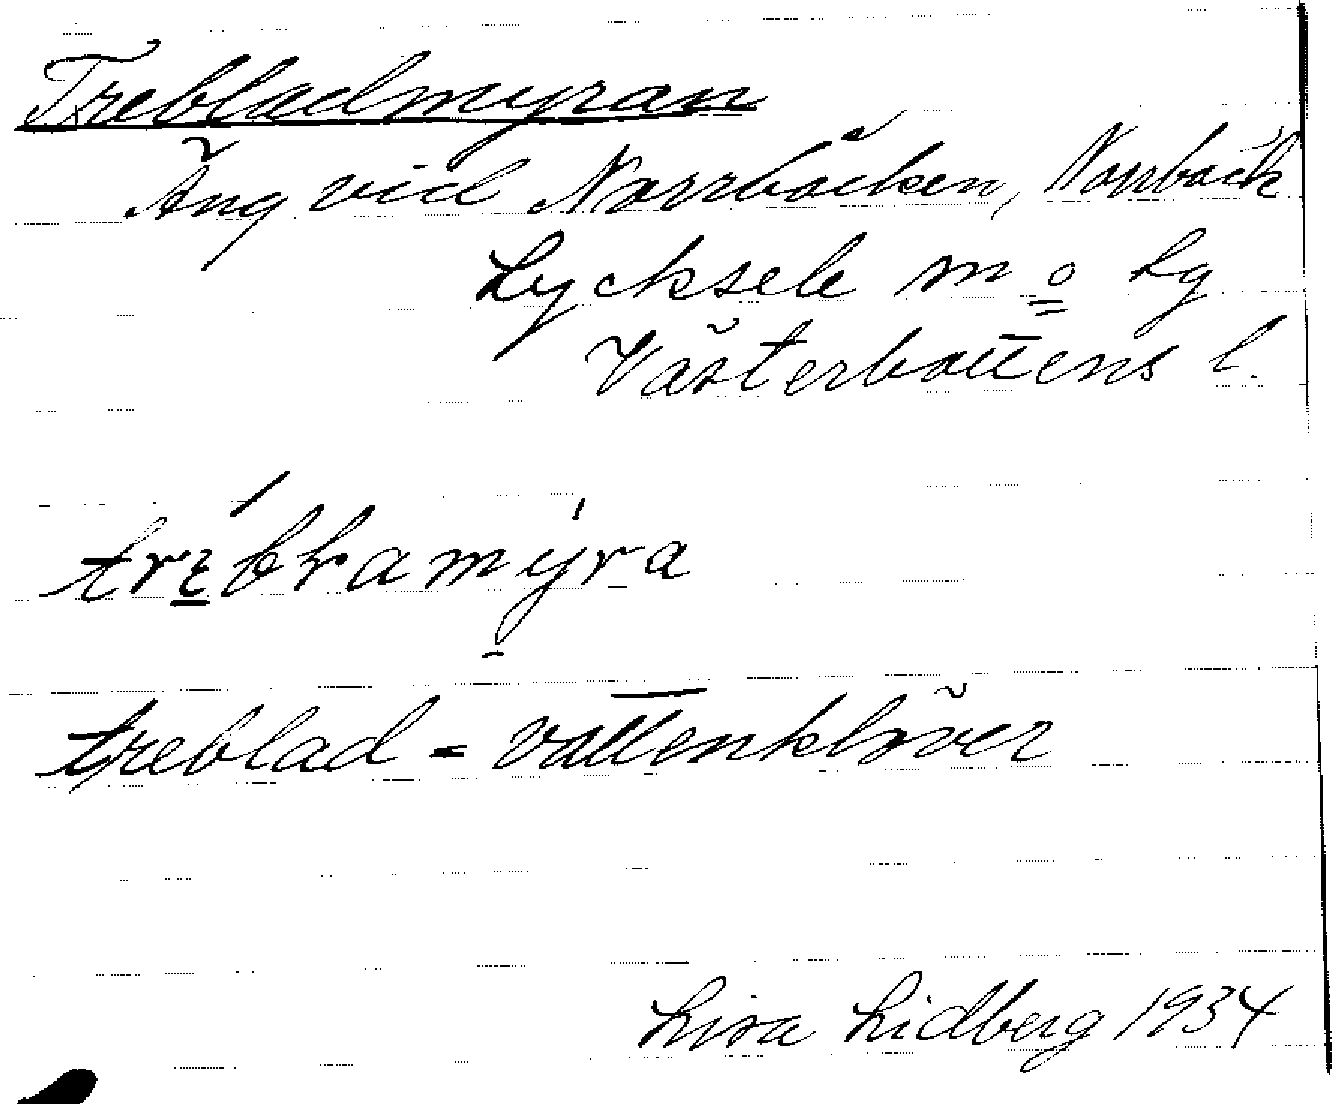 Trebladmyran
Äng vid Norrbäcken, Norrbäck
Lycksele m o Lg
Västerbottens l.
treblad = vattenklöver
Lisa Lidberg 1934